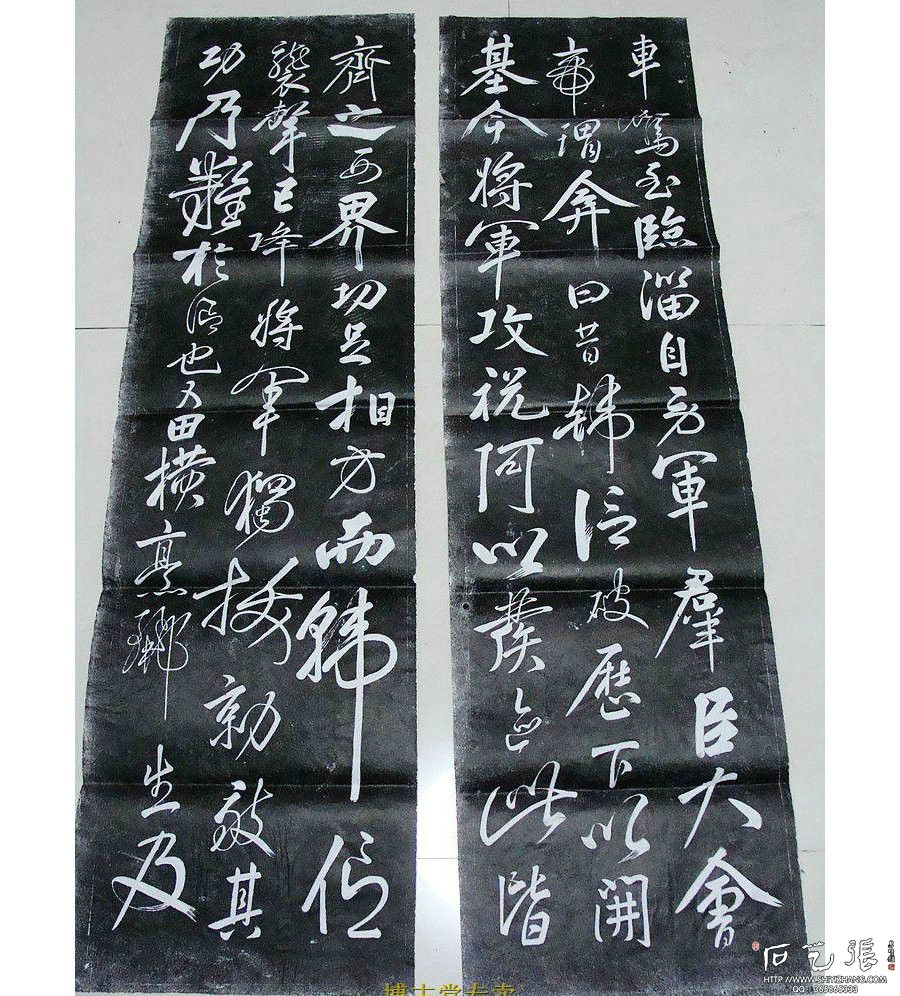 車駕至臨淄自勞軍群臣大會
帝謂弇曰昔韓信破歷下以開
基今將軍攻祝阿以發迹此皆
齊之西界功足相方而韓信
襲擊已降將軍獨拔勍敵其
功乃難於信也又田橫烹酈生及
石艺張
HTTP://WWW.SHIYIZHANG.COM
博古堂专卖